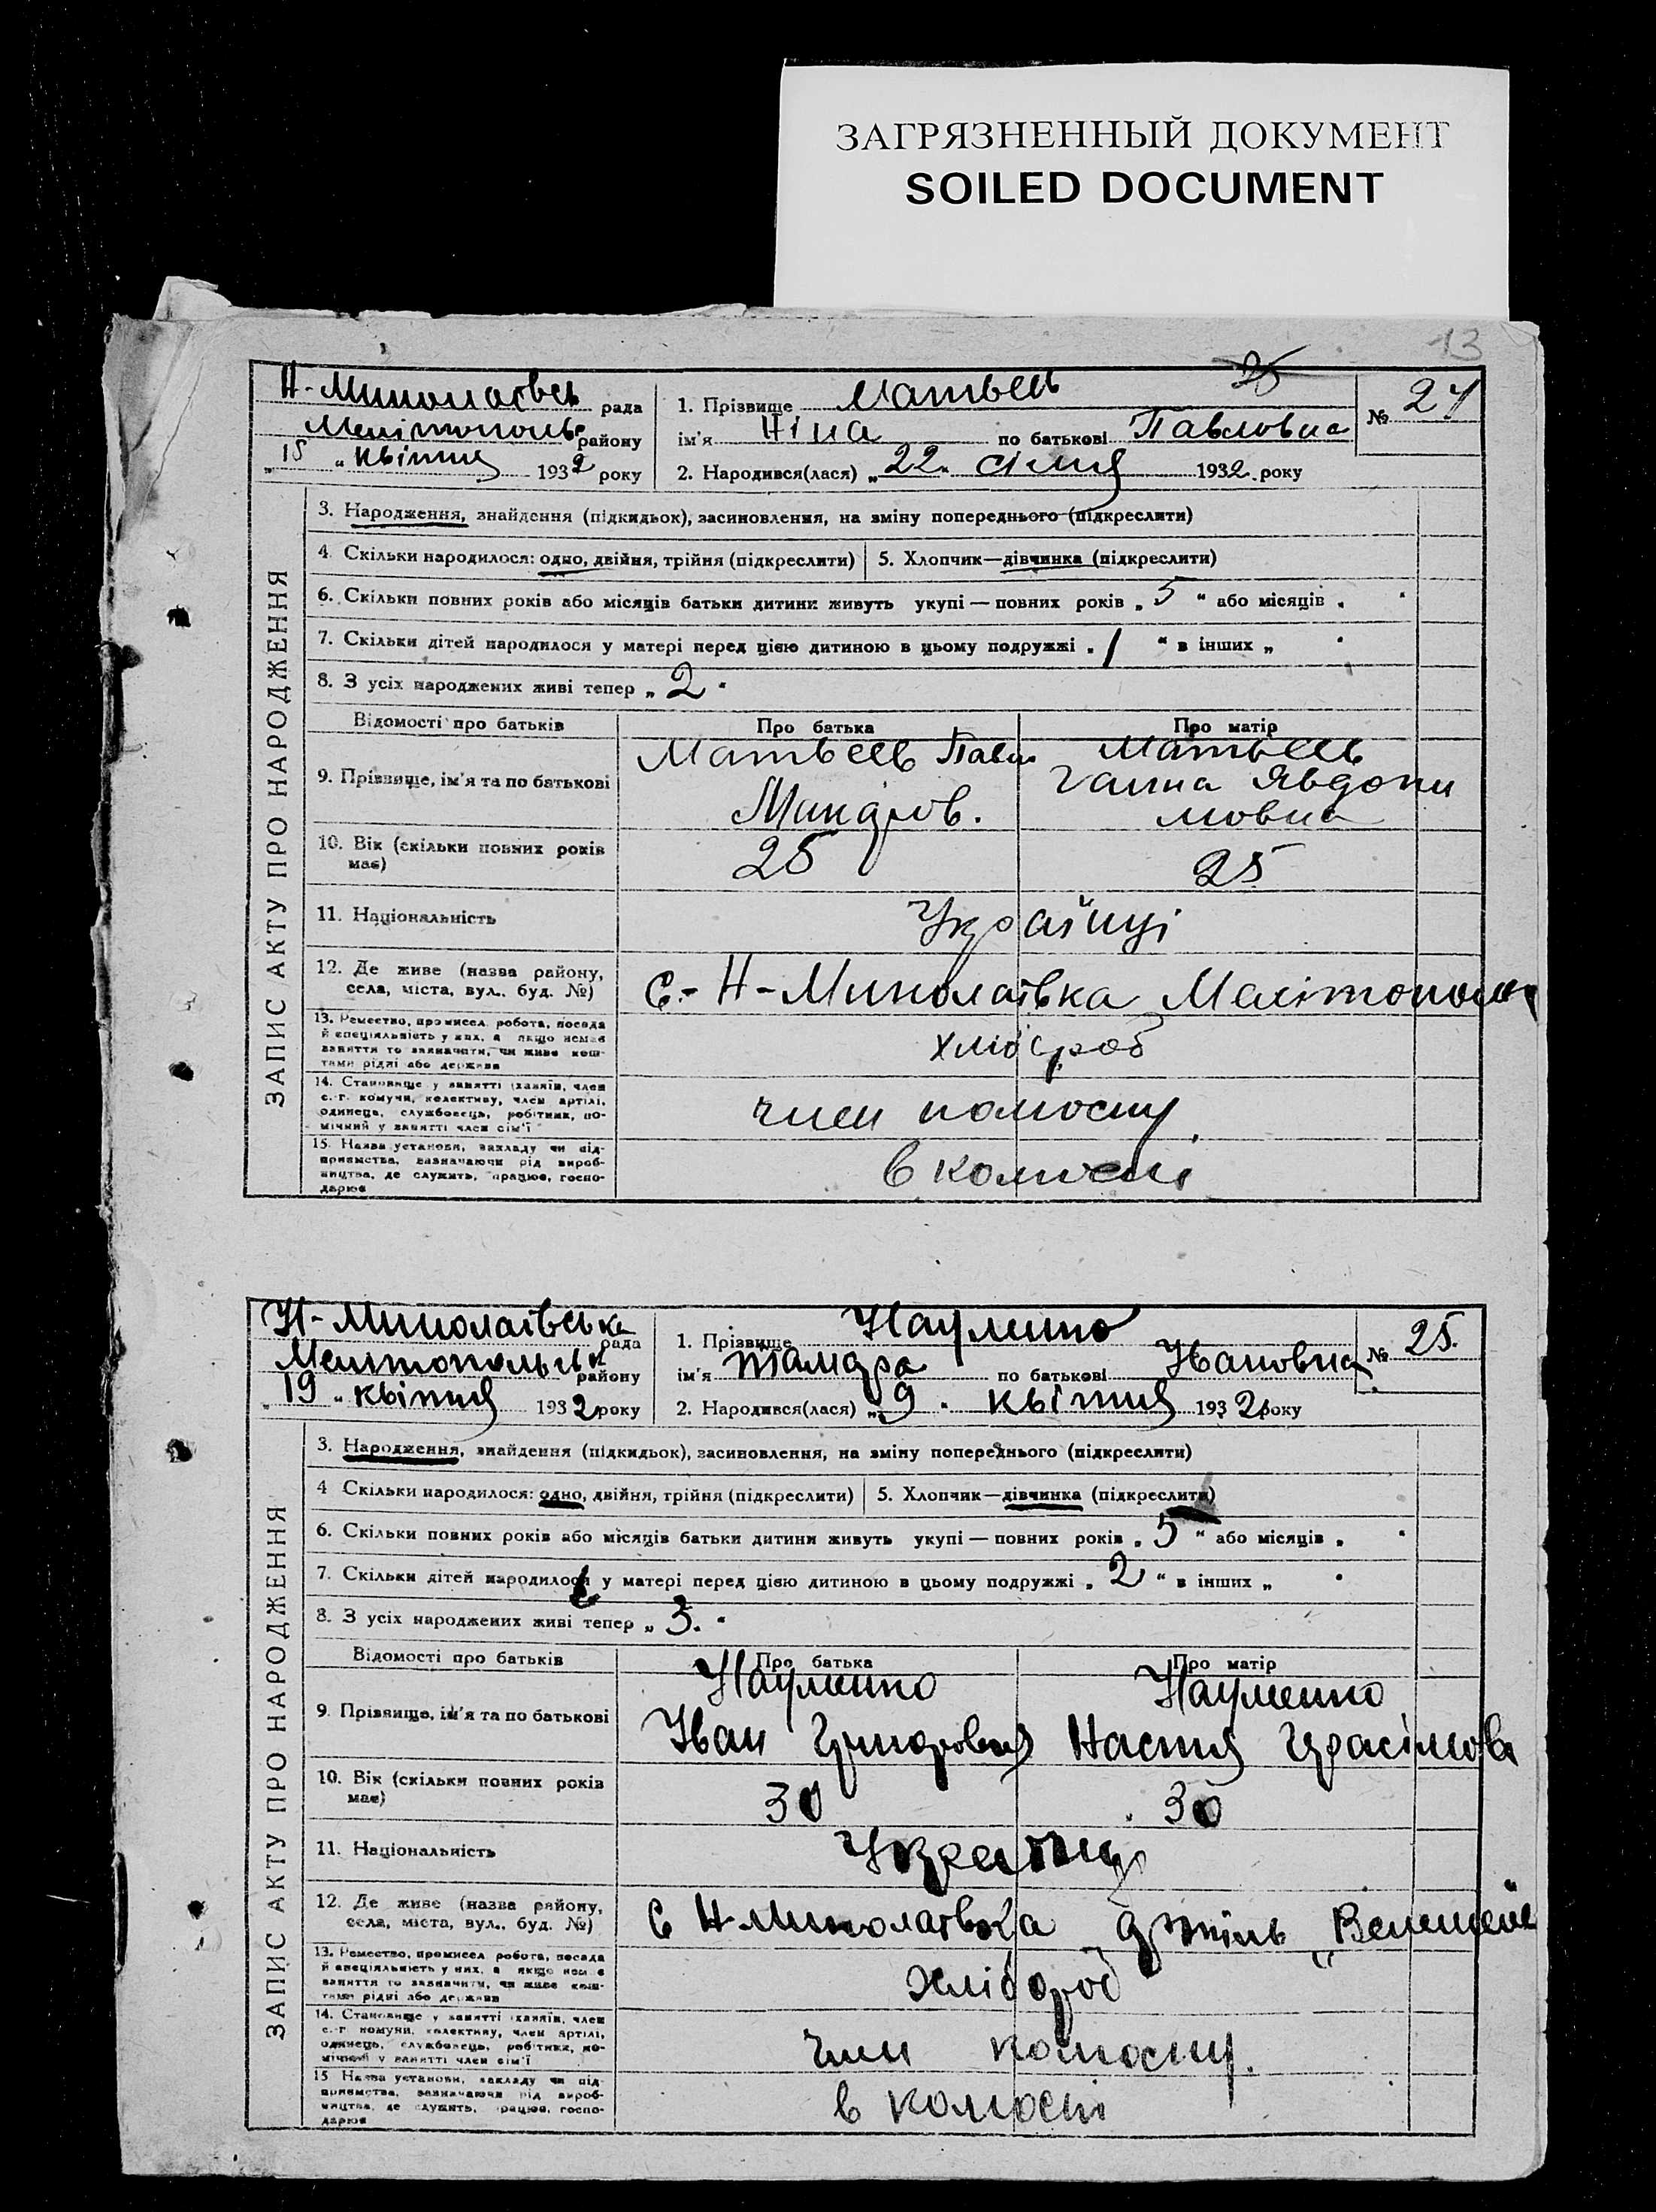 ЗАГРЯЗНЕННЫЙ ДОКУМЕНТ
SOILED DOCUMENT
13
Н-Миколаївсь рада
Мелітополь району
„15 „ квітня 1932 року
1. Прізвище Матвеев
ім'я Ніна по батькові Павловна
2. Народився(лася) „22. січня 1932. року
25
№ 24
ЗАПИС АКТУ ПРО НАРОДЖЕННЯ
3. Народження, знайдення (підкидьок), засиновлення, на зміну попереднього (підкреслити)
4. Скільки народилося: одно, двійня, трійня (підкреслити) 5. Хлопчик—дівчинка (підкреслити)
6. Скільки повних років або місяців батьки дитини живуть укупі — повних років „ 5 " або місяців „ "
7. Скільки дітей народилося у матері перед цією дитиною в цьому подружжі „ 1 " в інших „ "
8. З усіх народжених живі тепер „ 2 "
Відомості про батьків Про батька Про матір
9. Прізвище, ім'я та по батькові
Матвеев Павл
Матвеев
Ганна Явдоки
мовна
10. Вік (скільки повних років має)
25 25
11. Національність
Українці
12. Де живе (назва району,
села, міста, вул., буд. №)
с.- Н-Миколаївка
13. Ремество, промисел, робота, посада
й спеціяльність у них, а якщо немає
заняття то зазначити, чи живе кош-
тами рідні або держави
хлібороб
14. Становище у занятті (хазяїн, член
с.-г. комуни, колективу, член артілі,
одинець, службовець, робітник, по-
мічний у занятті член сім'ї
член колгоспу
15. Назва установи, закладу чи під-
приємства, зазначаючи рід вироб-
ництва, де служить, працює, госпо-
дарює
в колгоспі
Н-Миколаївська рада
Мелітопольськ району
„19 „ квітня 1932 року
1. Прізвище Науменко
ім'я Тамара по батькові Ивановна
2. Народився(лася) „9. квітня 1932 року
№ 25.
ЗАПИС АКТУ ПРО НАРОДЖЕННЯ
3. Народження, знайдення (підкидьок), засиновлення, на зміну попереднього (підкреслити)
4 Скільки народилося: одно, двійня, трійня (підкреслити) 5. Хлопчик—дівчинка (підкреслити)
6. Скільки повних років або місяців батьки дитини живуть укупі — повних років „ 5 " або місяців „ "
7. Скільки дітей народилося у матері перед цією дитиною в цьому подружжі „ 2 " в інших „ "
8. З усіх народжених живі тепер „ 3. "
Відомості про батьків Про батька Про матір
9. Прізвище, ім'я та по батькові
Науменко Науменко
Иван Григорович Настя Герасімов
10. Вік (скільки повних років має)
30 30
11. Національність
Українці
12. Де живе (назва району,
села, міста, вул., буд. №)
с Н-Миколаївка
13. Ремество, промисел, робота, посада
й спеціяльність у них, а якщо немає
заняття то зазначити, чи живе кош-
тами рідні або держави
Хлібороб
14. Становище у занятті (хазяїн, член
с.-г. комуни, колективу, член артілі,
одинець, службовець, робітник, по-
мічний у занятті член сім'ї
член колгоспу.
15 Назва установи, закладу чи під-
приємства, зазначаючи рід вироб-
ництва, де служить, працює, госпо-
дарює
в колгоспі